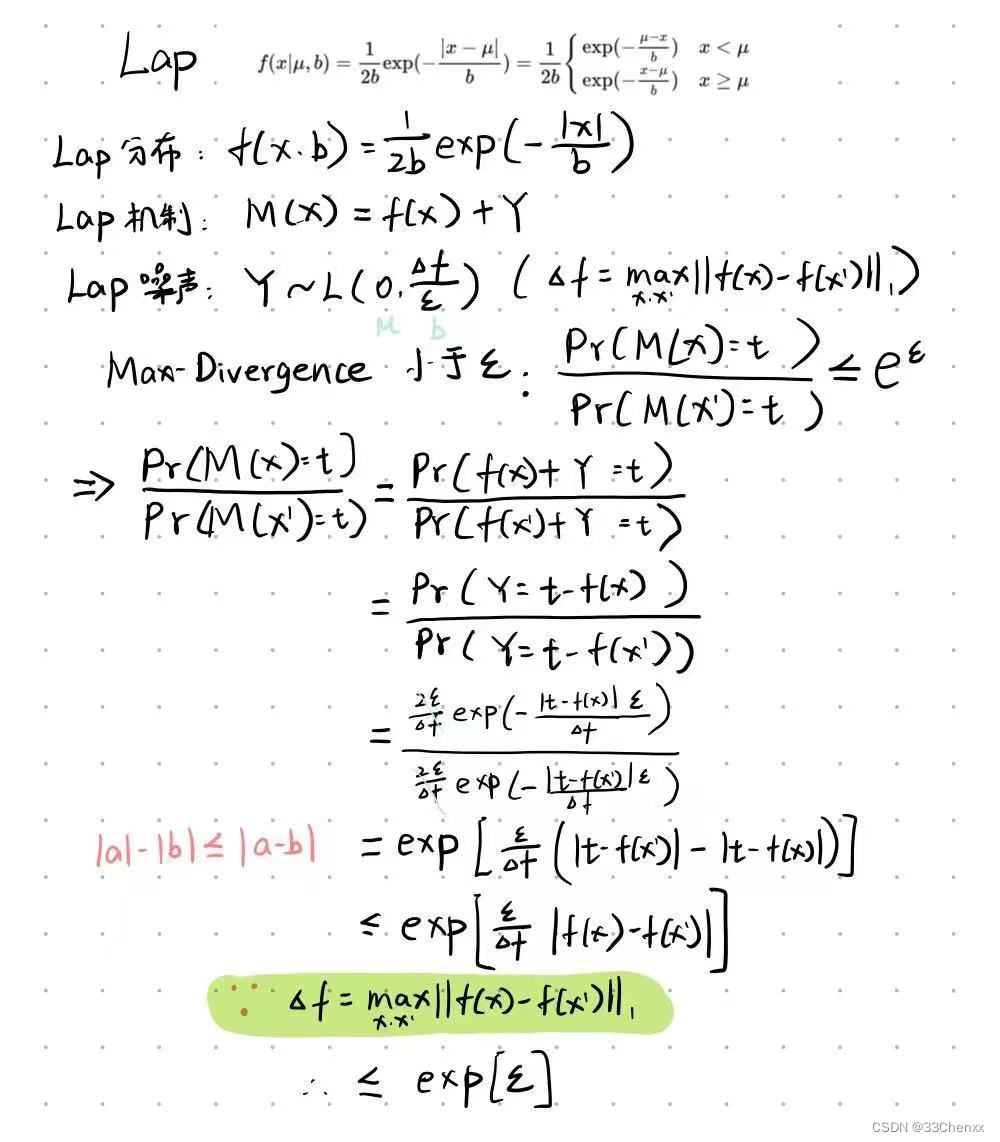 Lap f(x|μ, b) = 1/2b exp(−|x − μ|/b) = 1/2b { exp(−(μ−x)/b) x < μ
exp(−(x−μ)/b) x ≥ μ
Lap 分布: f(x.b) = 1/2b exp(−|x|/b)
Lap 机制: M(x) = f(x) + Y
Lap 噪声: Y ~ L(0. Δf/ε) (Δf = max x.x' ||f(x)−f(x')||₁)
μ b
Max-Divergence 小于 ε: Pr(M(x)=t) / Pr(M(x')=t) ≤ e^ε
⇒ Pr(M(x)=t] / Pr(M(x')=t) = Pr(f(x)+Y=t) / Pr(f(x')+Y=t)
= Pr(Y=t−f(x)) / Pr(Y=t−f(x'))
= 2ε/Δf exp(−|t−f(x)|ε/Δf) / 2ε/Δf exp(−|t−f(x')|ε/Δf)
|a|−|b|≤|a−b| = exp[ε/Δf (|t−f(x')|−|t−f(x)|)]
≤ exp[ε/Δf |f(x)−f(x')|]
∵ Δf = max x.x' ||f(x)−f(x')||₁
∴ ≤ exp[ε]
CSDN @33Chenxx